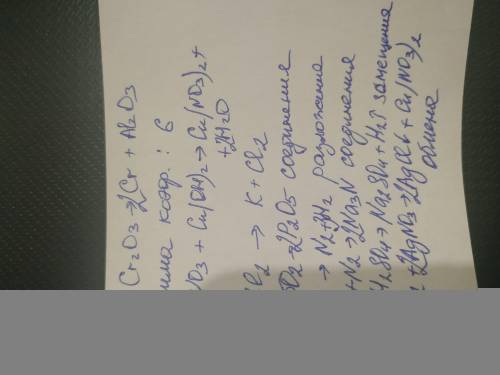 Cr2O3 → 2Cr + Al2O3
коэф.: 6
O3 + Cu(OH)2 → Cu(NO3)2 +
+ 2H2O
→ K + Cl2
5O2 → 2P2O5 соединения
→ N2 + 3H2 разложения
+ N2 → 2Na3N соединения
H2SO4 → Na2SO4 + H2↑ замещения
+ 2AgNO3 → 2AgCl↓ + Cu(NO3)2
обмена